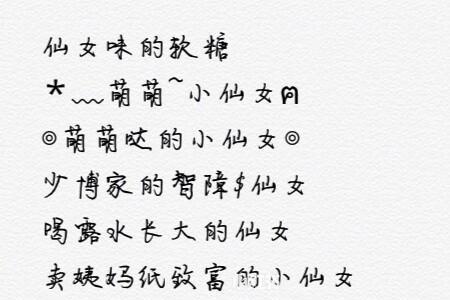 仙女味的软糖
*﹏萌萌~小仙女ฅ
◎萌萌哒的小仙女◎
少博家的智障$仙女
喝露水长大的仙女
卖姨妈纸致富的小仙女